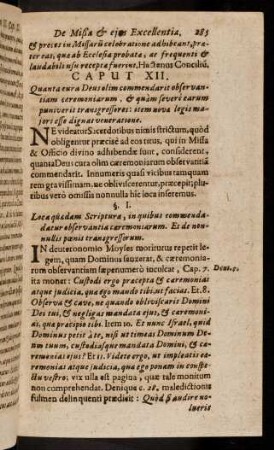 De Missa & ejus Excellentia, 285
& preces in Missarū celebratione adhibeant, præ-
ter eas, quæ ab Ecclesia probatæ, ac frequenti &
laudabili usu receptæ fuerint. Hactenus Conciliū.
CAPUT XII.
Quanta cura Deus olim commendarit observan-
tiam ceremoniarum, & quàm severè earum
punîverit transgressores: item novæ legis ma-
jori esse dignas veneratione.
NE videatur Sacerdotibus nimis strictum, quòd
obligentur præcisè ad eos ritus, qui in Missa
& Officio divino adhibendæ sunt, considerent,
quanta Deus cura olim cæremoniarum observantiā
commendarit. Innumeris quasi vicibus tamquam
rem gravissimam, ne obliviscerentur, præcepit; plu-
ribus verò omissis nonnulla hîc loca inseremus.
§. I.
Loca quædam Scripturæ, in quibus commenda-
datur observantia cæremoniarum. Et de non-
nullis pœnis transgressorum.
IN deuteronomio Moyses moriturus repetit le-
gem, quam Dominus sanxerat, & cæremonia-
rum observantiam sæpenumerò inculcat, Cap. 7. Deut. 5.
ita monet: Custodi ergo præcepta & cæremonias
atque judicia, quæ ego mando tibi, ut facias. Et 8.
Observa & cave, ne quando obliviscaris Domini
Dei tui, & negligas mandata ejus, & cæremoni-
as, quæ præcipio tibi. Item 10. Et nunc Israel, quid
Dominus petit à te, nisi ut timeas Dominum De-
um tuum, custodiasque mandata Domini, & cæ-
remonias ejus? Et 11. Videte ergo, ut impleatis cæ-
remonias atque judicia, quæ ego ponam in conspe-
ctu vestro; vix ulla est pagina, quæ tale monitum
non comprehendat. Denique c. 28. maledictionis
fulmen delinquenti prædixit: Quòd si audire no-
lueris